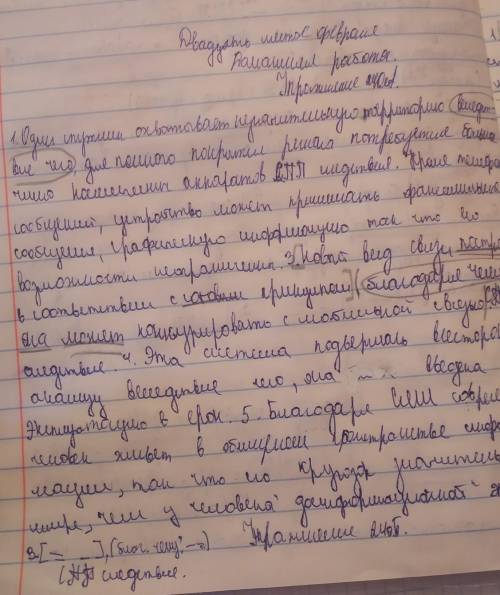 Двадцать шестое февраля
Домашняя работа.
Упражнение 240а.
1. Один спутник охватывает незначительную территорию (вследст-
вие чего) для полного покрытия региона потребуется большое
число космических аппаратов СПП следствия. 2. Кроме телефонных
сообщений, устройство может принимать факсимильные
сообщения, графическую информацию так что его
возможности неограничены. 3 [новый вид связи постро
в соответствии с новым принципом] (благодаря чему
она может конкурировать с мобильной связью)
следствие. 4. Эта система подверглась всесторон
анализу вследствие чего, она введена в
эксплуатацию в срок. 5. Благодаря СМИ современ
человек живет в обширном пространстве инфор
мации, так что его кругозор значительно
шире, чем у человека доинформационной
3. [= _], (благ. чему _ =)
следствие.
Упражнение 240б.